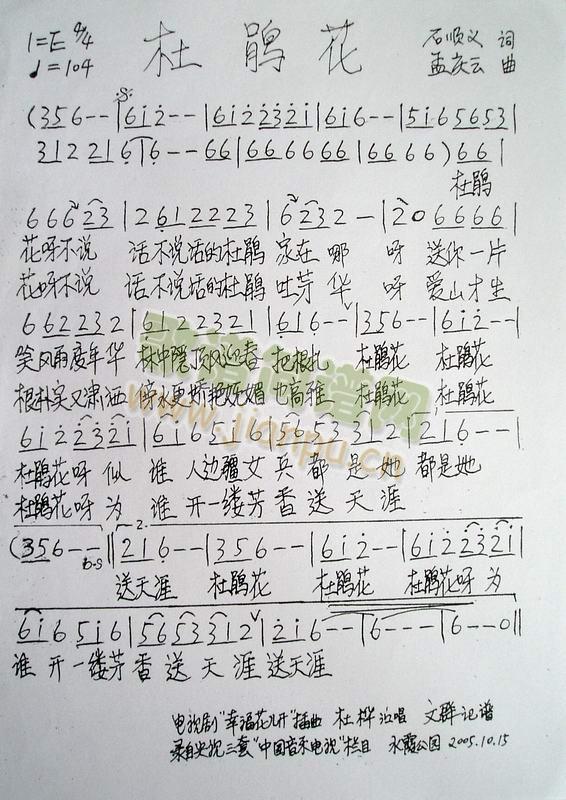 1=E 4/4 杜鹃花 石顺义 词
♩=104 孟庆云 曲
(356-- | 6i2-- | 6i2232i | 6i6-- | 5i65653 |
3122216 | 6--66 | 6666666 | 6666) 66 |
杜鹃
66623 | 26122223 | 6232- | 206666 |
花呀不说 话不说话的杜鹃 家在哪 呀 送你一片
花呀不说 话不说话的杜鹃 吐芳华 呀 爱山才生
662232 | 612232i | 6i6-- | 356-- | 6i2-- |
笑风雨度年华 林中 顶风迎春 把根扎 杜鹃花 杜鹃花
根朴实又潇洒 傍水更娇艳妩媚 也高雅 杜鹃花 杜鹃花
6i2232i | 6i65i6 | 5653312 | 2i6-- |
杜鹃花呀 似 谁 人边疆女兵都是她 都是她
杜鹃花呀 为 谁 开一缕芳香送天涯
(356-- || 2i6-- | 356-- | 6i2-- | 6i2232i |
D.S 2.
送天涯 杜鹃花 杜鹃花 杜鹃花呀 为
6i65i6 | 5653312 | 2i6-- | 6--- | 6--0 ||
谁 开一缕芳香送天涯 送天涯
电视剧"幸福花儿开"插曲 杜桦 演唱 文群 记谱
录自央视三套"中国音乐电视"栏目 永霞公园 2005.10.15
歌谱简谱网
www.jianpu.cn